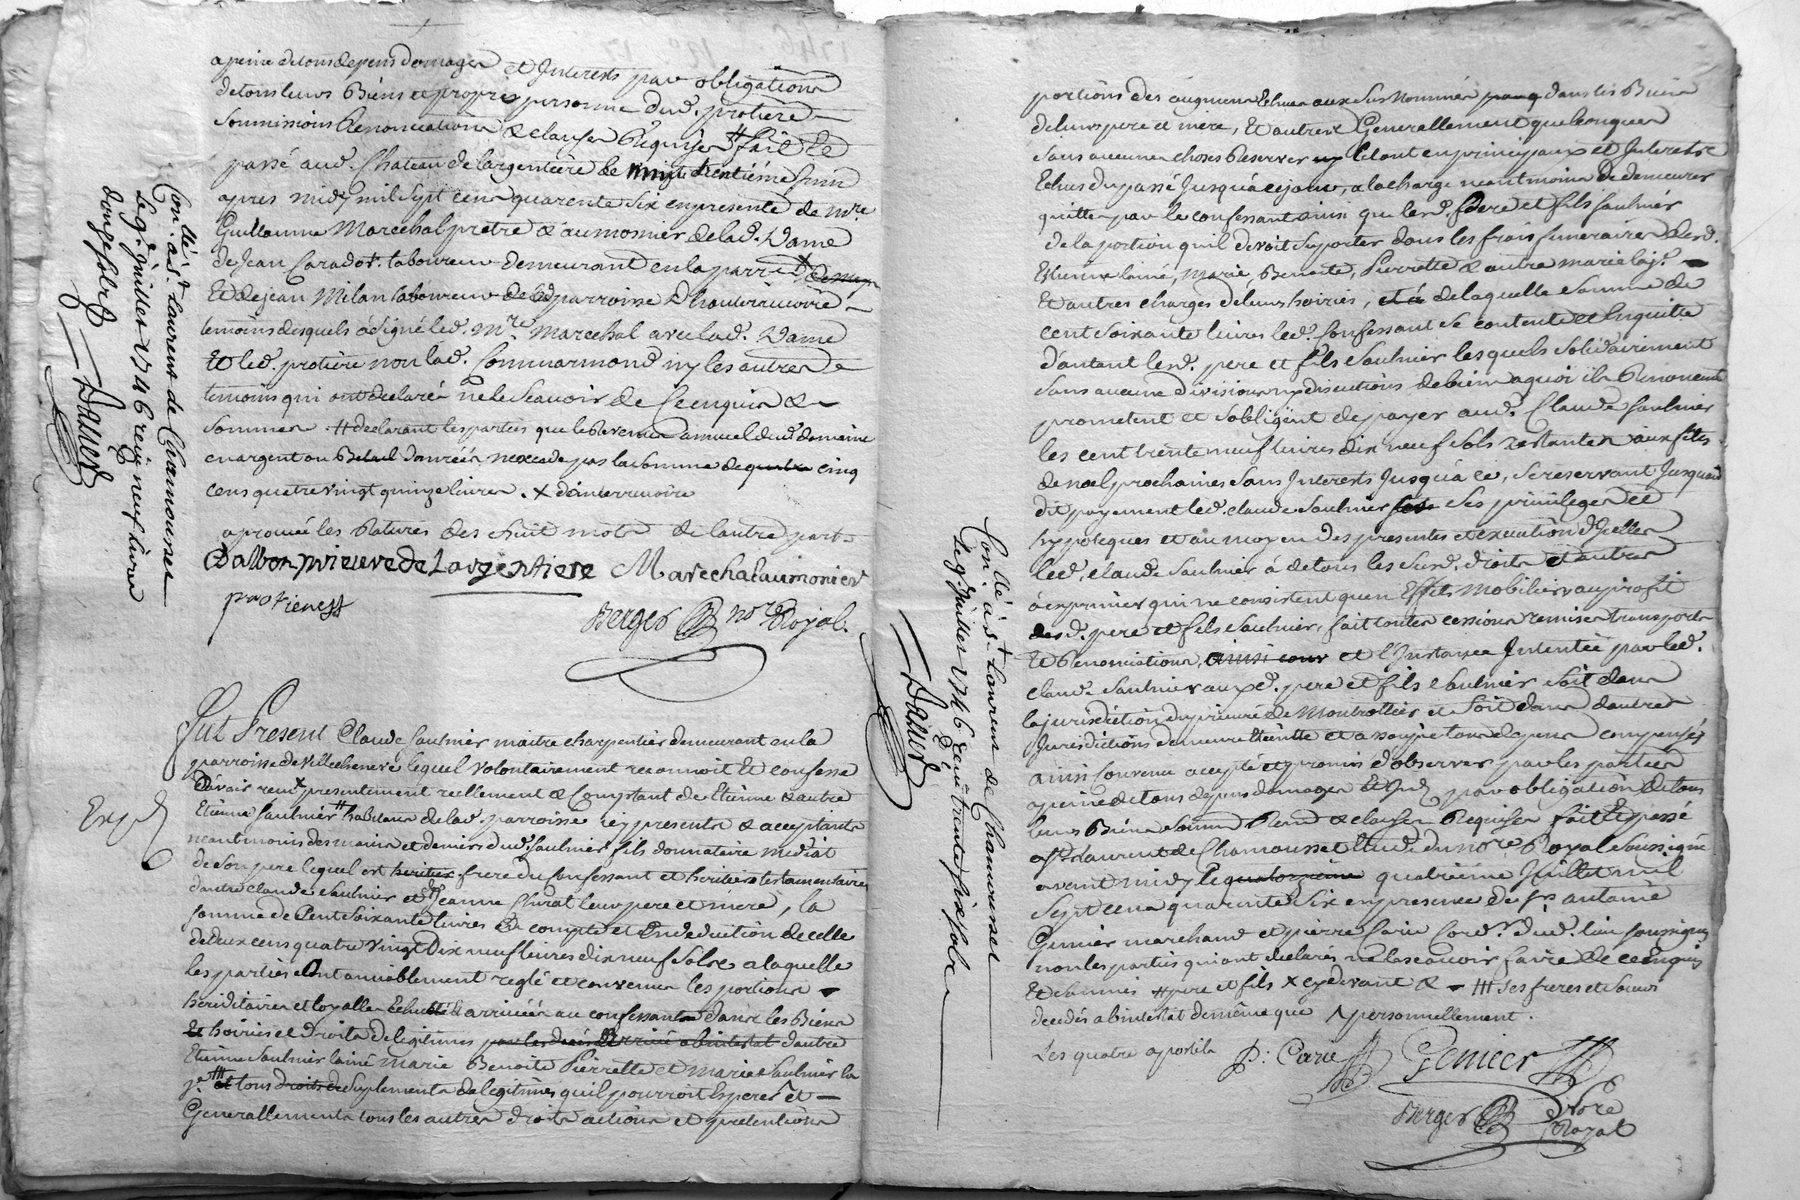 a peine de tous depens domages et Interests par obligations
de tous leurs Biens et propre personne dud. protiere
soumissions Renonciations & clauses Requises # fait et
passé aud. Chateau de Largentiere le trentiéme Juin
apres midy mil sept cens quarente six en presence de mre
Guillaume Marechal prêtre & aumosnier de lad. Dame
de Jean Caradot laboureur demeurant en la parr.
Et de jean Milan laboureur de lad parroisse D'hauterivoire
temoins desquels a signé led. mre Marechal avec lad. Dame
Et led. protiere non lad. Commarmond ny les autres
temoins qui ont declaré ne le sçavoir de ce enquis &
sommés # declarant les parties que le Revenu annuel dud. domaine
en argent ou danrées nexcede pas la somme de cinq
cens quatre vingt quinze livres. x d'auterivoire
aprouvé les Ratures des huit mots de l'autre part
Dalbon prieure de Largentiere Marechal aumonier
protiere
Berger nore Royal.
Con.llé à St. Laurent de Chamousset
le 9e. Juillet 1746 reçû neuf livres
douze sols
Daned
Fut Present Claude Saulnier maitre charpentier demeurant en la
parroisse de villecheneve lequel volontairement reconnoit Et confesse
Davoir receu presentement reellement & Comptant de Etienne & autre
Etienne Saulnier # habitans de lad. parroisse icy presents & acceptants
neantmoins des mains et deniers dud. Saulnier fils donnataire mediat
de son pere lequel est frere du Confessant et heritiers testamentaires
d'autre claude Saulnier et de Jeanne Chirat leur pere et mere, la
somme de Cent soixante livres à compte et En deduction de celle
de deux cens quatre vingt Dix neuf livres dix neuf sols a laquelle
les parties Ont amiablement reglé et convenu les portions
hereditaires et loyalles Echues & arrivées au confessant dans les Biens
hoiries et droits de legitimes par les decés abintestat d'autre
Etienne Saulnier lainé Marie Benoite Pierrette et marie Saulnier la
je. # tous droits de suplement de legitimes quil pourroit Esperer et
Generallement tous les autres droits actions et pretentions
Exp.d
portions des augmens Echus aux sus Nommés dans les Biens
de leurs pere et mere, Et autres Generallement quelconques
sans aucunes choses Reserver ny le tout en principaux et Interets
Echus du passé Jusqu'à ce jour, a la charge neantmoins de demeurer
quitte par le confessant ainsi que lesd. pere et fils Saulnier
de la portion qu'il devoit suporter dans les frais funeraires desd.
Etienne lainé, Marie, Benoite, Pierrette & autre marie la je.
Et autres charges de leurs hoiries, de laquelle somme de
cent soixante livres led. Confessant se contente et En quitte
d'autant lesd. pere et fils Saulnier lesquels solidairement
sans aucune division ny discutions de biens a quoi ils Renoncent
promettent et s'obligent de payer aud. Claude Saulnier
les cent trente neuf livres dix neuf sols restantes aux fêtes
de noel prochaines sans Interets Jusqu'à ce, se reservant Jusquaud
dit payement led. claude Saulnier ses privileges et
hypoteques et au moyen des presentes et execution d'Icelles
led. claude Saulnier à de tous les susd. droits et autres
à exprimer qui ne consistent qu'en Effets Mobiliers au profit
desd. pere et fils Saulnier, fait toutes cessions remises transports
Et Renonciations, et l'Instance Intentée par led.
claude Saulnier auxd. pere et fils Saulnier soit dans
la jurisdiction du prieuré de Montrottier et soit dans d'autres
Jurisdictions demeure Eteinte et assoupie tous depens compensés
ainsi Convenu accepté et promis d'observer par les parties
a peine de tous depens domages et Int. par obligation de tous
leurs Biens soumis. Renon. & clauses Requises fait Et passé
a St. Laurent de Chamousset Etude du nore. Royal soussigné
avant midy le quatriéme Juillet mil
sept cens quarente six en presence de srs antoine
Genier marchand et pierre Carie Cord.r dud. lieu soussignés
non les parties qui ont declarés ne le sçavoir faire de ce Enquis
Et sommés # pere et fils x cy devant & ### ses freres et sœurs
decedés abintestat de même que personnellement.
Les quatre apostils P: Carie Genier
Berger Nore Royal
Con.llé à St. Laurent de Chamousset
le 9e. Juillet 1746 Reçû trente six sols
Daned